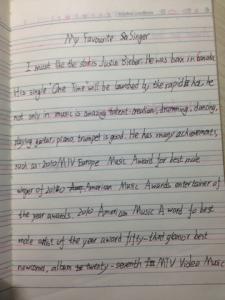 My Favourite Singer
I must the the stat is Justin Bieber. He was born in Canada.
His single "One Time" will be launched by the rapid for. He
not only in music is amazing talent creation, drumming, dancing,
playing guitar, piano, trumpet is good. He has many achievements,
such as 2010 MTV Europe Music Award for best male
singer of 2010 American Music Awards entertainer of
the year awards. 2010 American Music Award fo best
male artist of the year award fifty-third best
newcomer, album twenty-seventh MTV Video Music